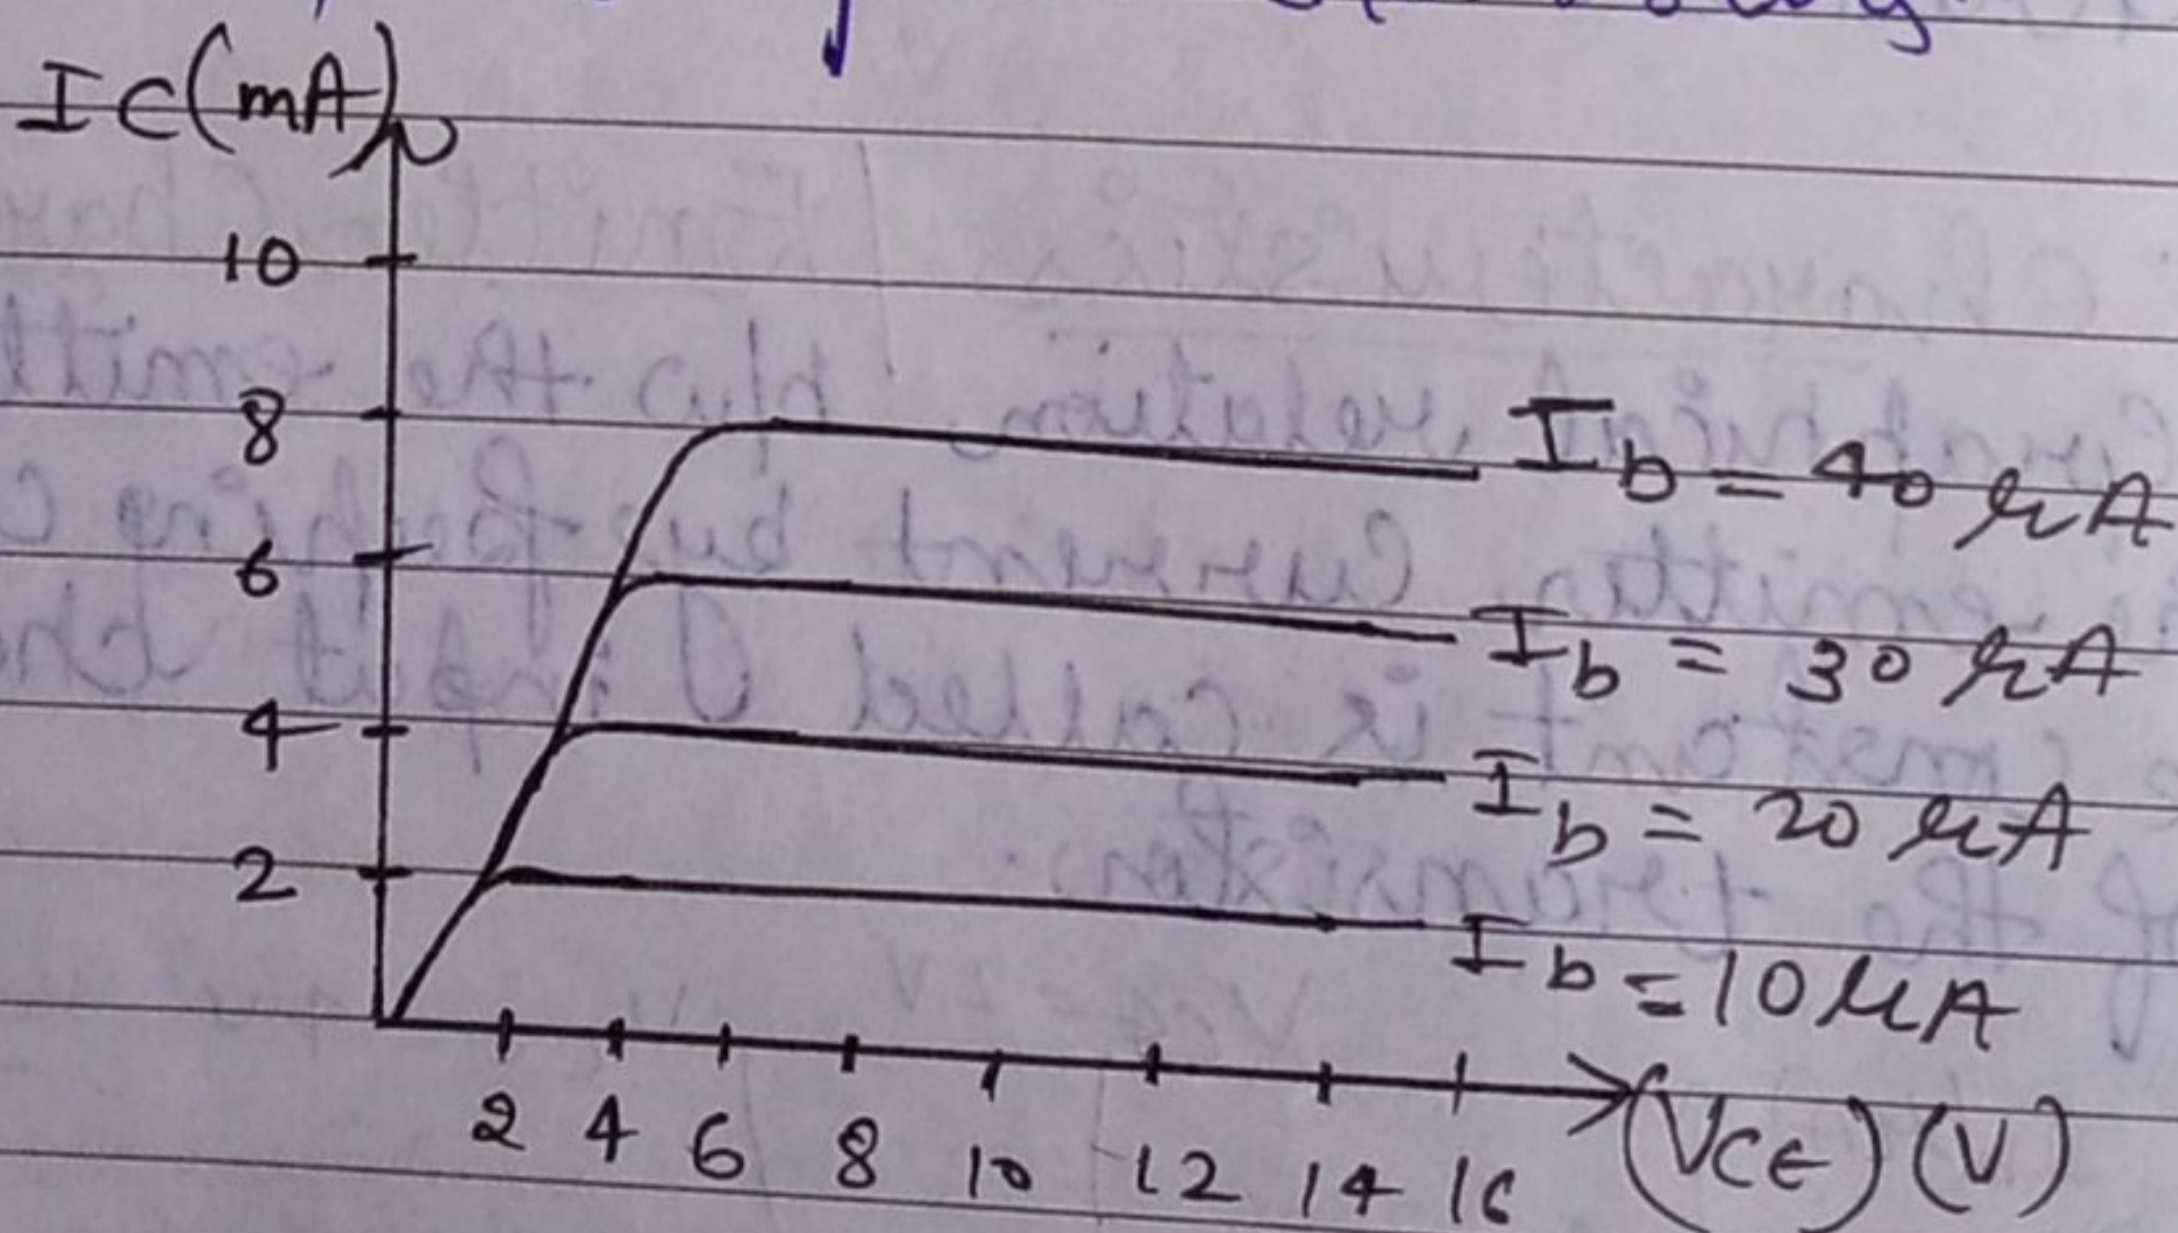 Ic(mA)
10
8
6
4
2
Ib = 40 μA
Ib = 30 μA
Ib = 20 μA
Ib = 10 μA
2 4 6 8 10 12 14 16 (VCE) (V)